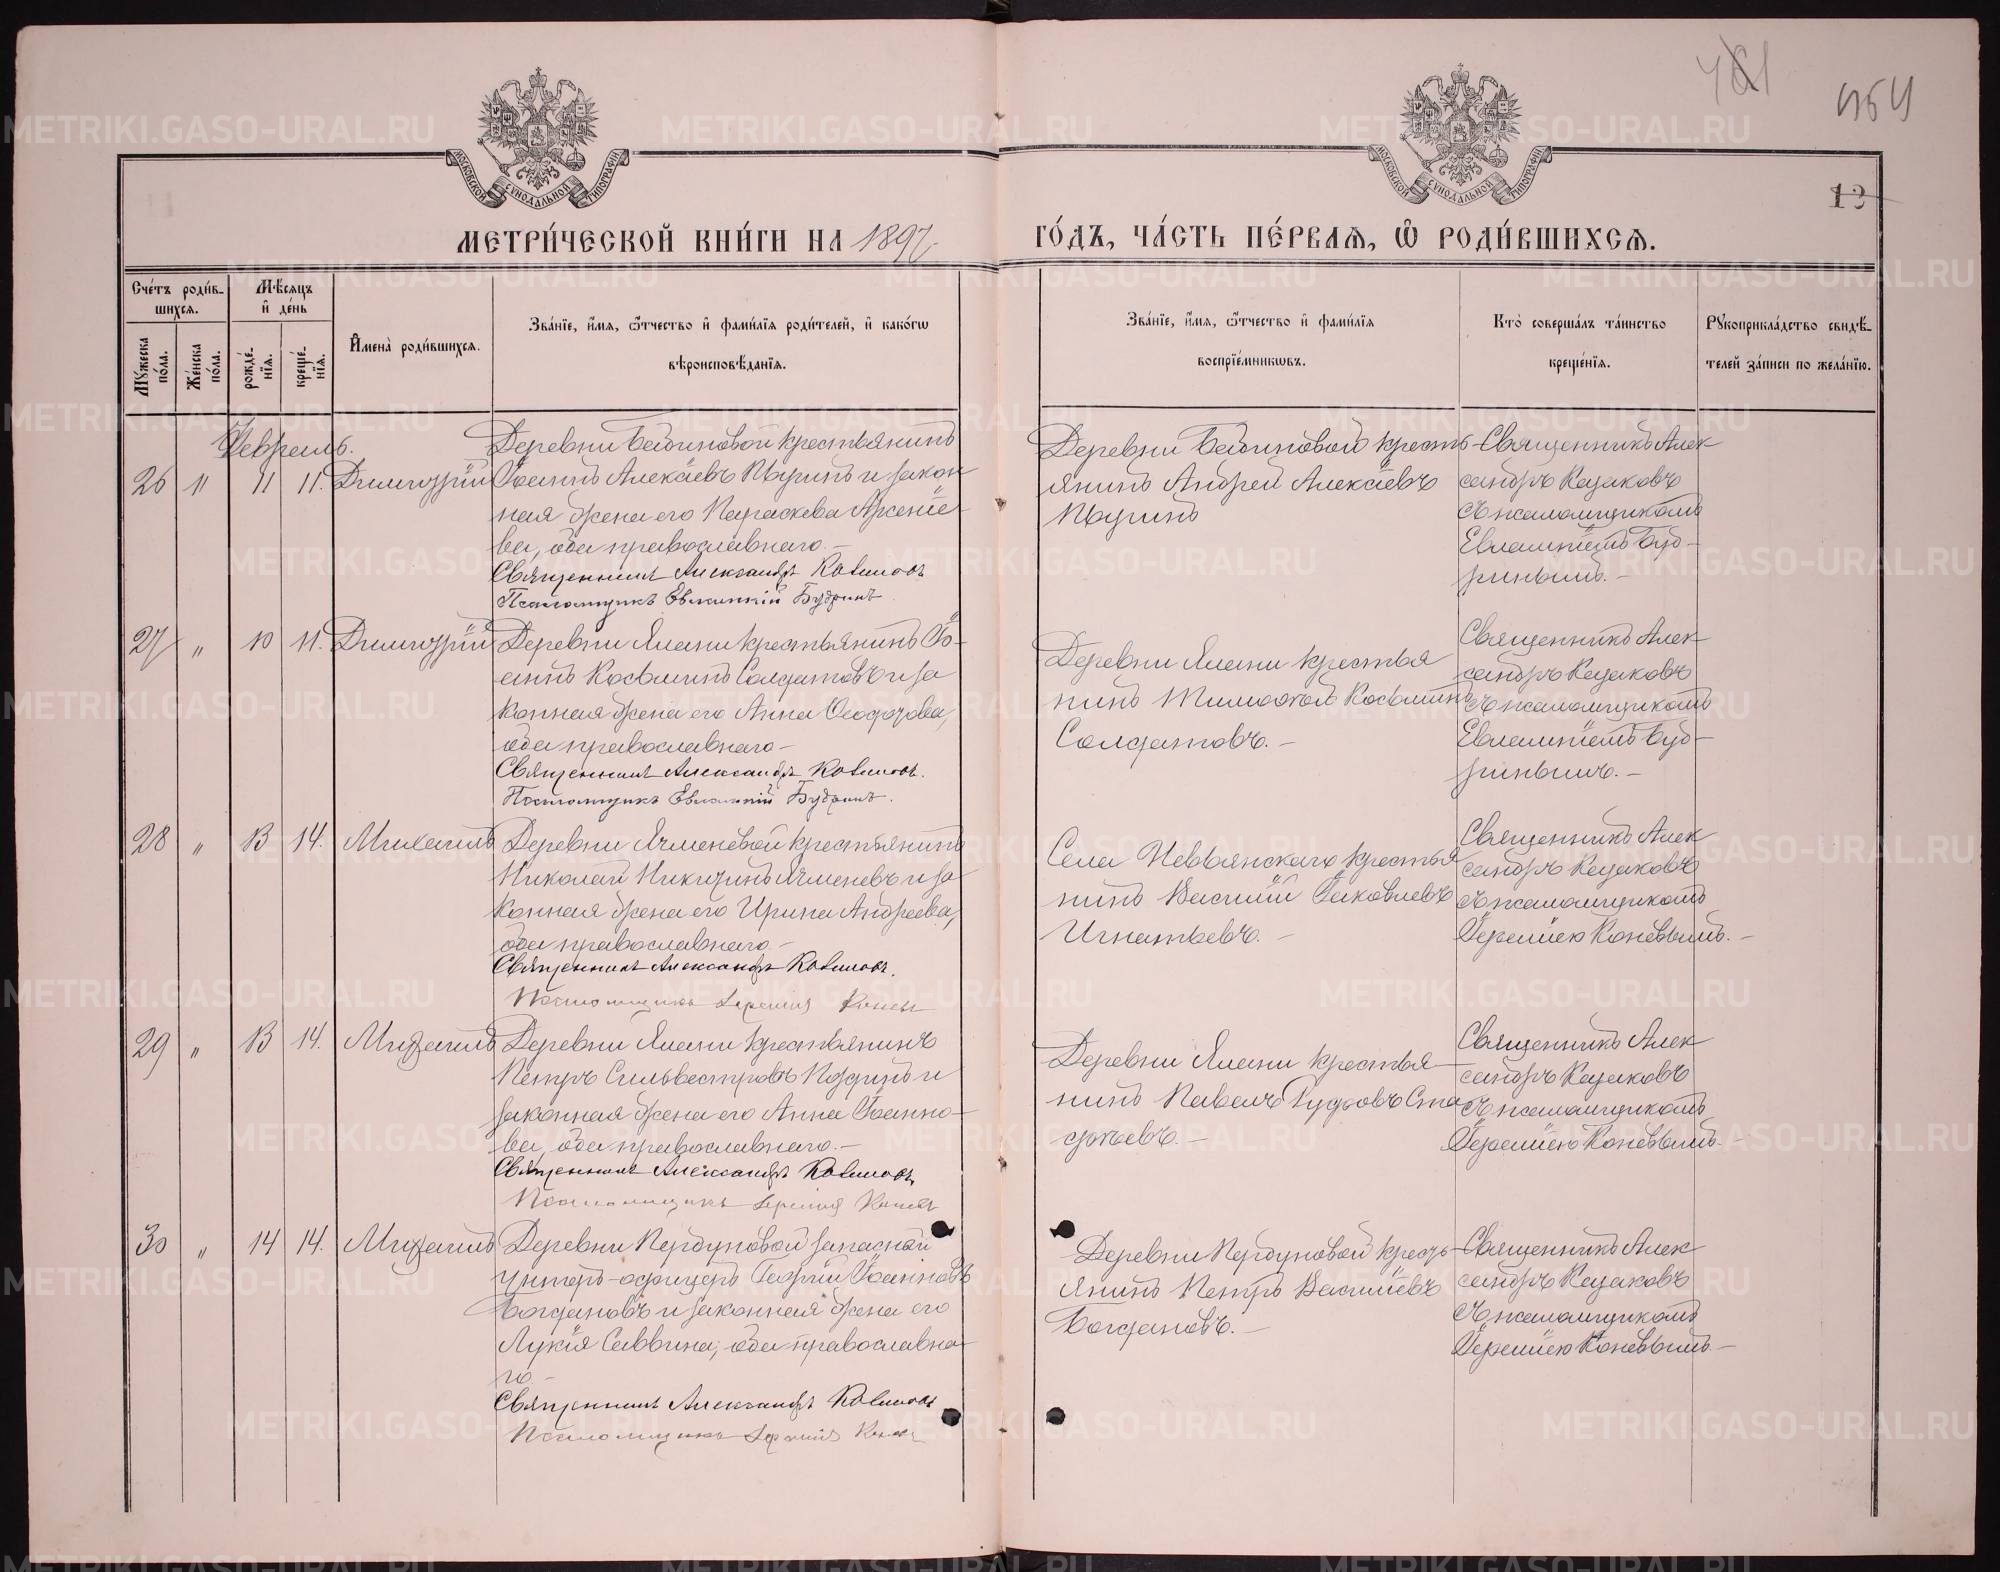 461
464
13
МОСКОВСКОЙ СѴНОДАЛЬНОЙ ТИПОГРАФІИ
МОСКОВСКОЙ СѴНОДАЛЬНОЙ ТИПОГРАФІИ
МЕТРИ́ЧЕСКОЙ КНИ́ГИ НА 1897
ГО́ДЪ, ЧА́СТЬ ПЕ́РВАѦ, Ѡ РОДИ́ВШИХСѦ.
Сче́тъ роди́в-
шихсѧ.
Мꙋ́жеска по́ла.
Же́нска по́ла.
Мѣ́сѧцъ и де́нь
рожде́-нїѧ.
креще́-нїѧ.
Имена̀ роди́вшихсѧ.
Зва́нїе, и́мѧ, ѻ҆́тчество и фами́лїѧ роди́телей, и како́гѡ
вѣроисповѣ́данїѧ.
Зва́нїе, и́мѧ, ѻ҆́тчество и фами́лїѧ
воспрїе́мникѡвъ.
Кто̀ соверша́лъ та́инство
креще́нїѧ.
Рꙋкоприкла́дство свидѣ́-
телей за́писи по жела́нїю.
Февраль.
26 " 11 11. Димитрій
Деревни крестьянинъ
Іоаннъ Алексіевъ и закон
ная жена его Параскева Арсеніе-
ва, оба православнаго.-
Священникъ Александръ Казаковъ
Псаломщикъ Евлампій Будринъ
Деревни кресть-
янинъ Андрей Алексіевъ
Священникъ Алек
сандръ Казаковъ
съ псаломщикомъ
Евлампіемъ Буд-
ринымъ.-
27 " 10 11. Димитрій
Деревни Ялани крестьянинъ Іо-
аннъ Косьминъ Солдатовъ и за
конная жена его Анна Ѳеодорова,
оба православнаго-
Священникъ Александръ Казаковъ.
Псаломщикъ Евлампій Будринъ.
Деревни Ялани крестья
нинъ Тимоѳей Косьминъ
Солдатовъ.-
Священникъ Алек
сандръ Казаковъ
съ псаломщикомъ
Евлампіемъ Буд-
ринымъ.-
28 " 13 14. Михаилъ
Деревни Ячменевой крестьянинъ
Николай Никитинъ Ячменевъ и за
конная жена его Ирина Андреева,
оба православнаго-
Священникъ Александръ Казаковъ.
Псаломщикъ Іеремія Коневъ
Села Невьянскаго крестья
нинъ Василій Іаковлевъ
Игнатьевъ.-
Священникъ Алек
сандръ Казаковъ
съ псаломщикомъ
Іереміею Коневымъ.-
29 " 13 14. Михаилъ
Деревни Ялани крестьянинъ
Петръ Сильвестровъ и
законная жена его Анна Іоанно-
ва, оба православнаго.-
Священникъ Александръ Казаковъ
Псаломщикъ Іеремія Коневъ
Деревни Ялани крестья-
нинъ Павелъ
Священникъ Алек
сандръ Казаковъ
съ псаломщикомъ
Іереміею Коневымъ.-
30 " 14 14. Михаилъ
Деревни Пердуновой запасный
унтеръ-офицеръ Георгій Іоанновъ
Богдановъ и законная жена его
Лукія Саввина, оба православна-
го-
Священникъ Александръ Казаковъ
Псаломщикъ Іеремія Коневъ
Деревни Пердуновой кресть-
янинъ Петръ Василіевъ
Богдановъ.-
Священникъ Алек
сандръ Казаковъ
съ псаломщикомъ
Іереміею Коневымъ.-
METRIKI.GASO-URAL.RU